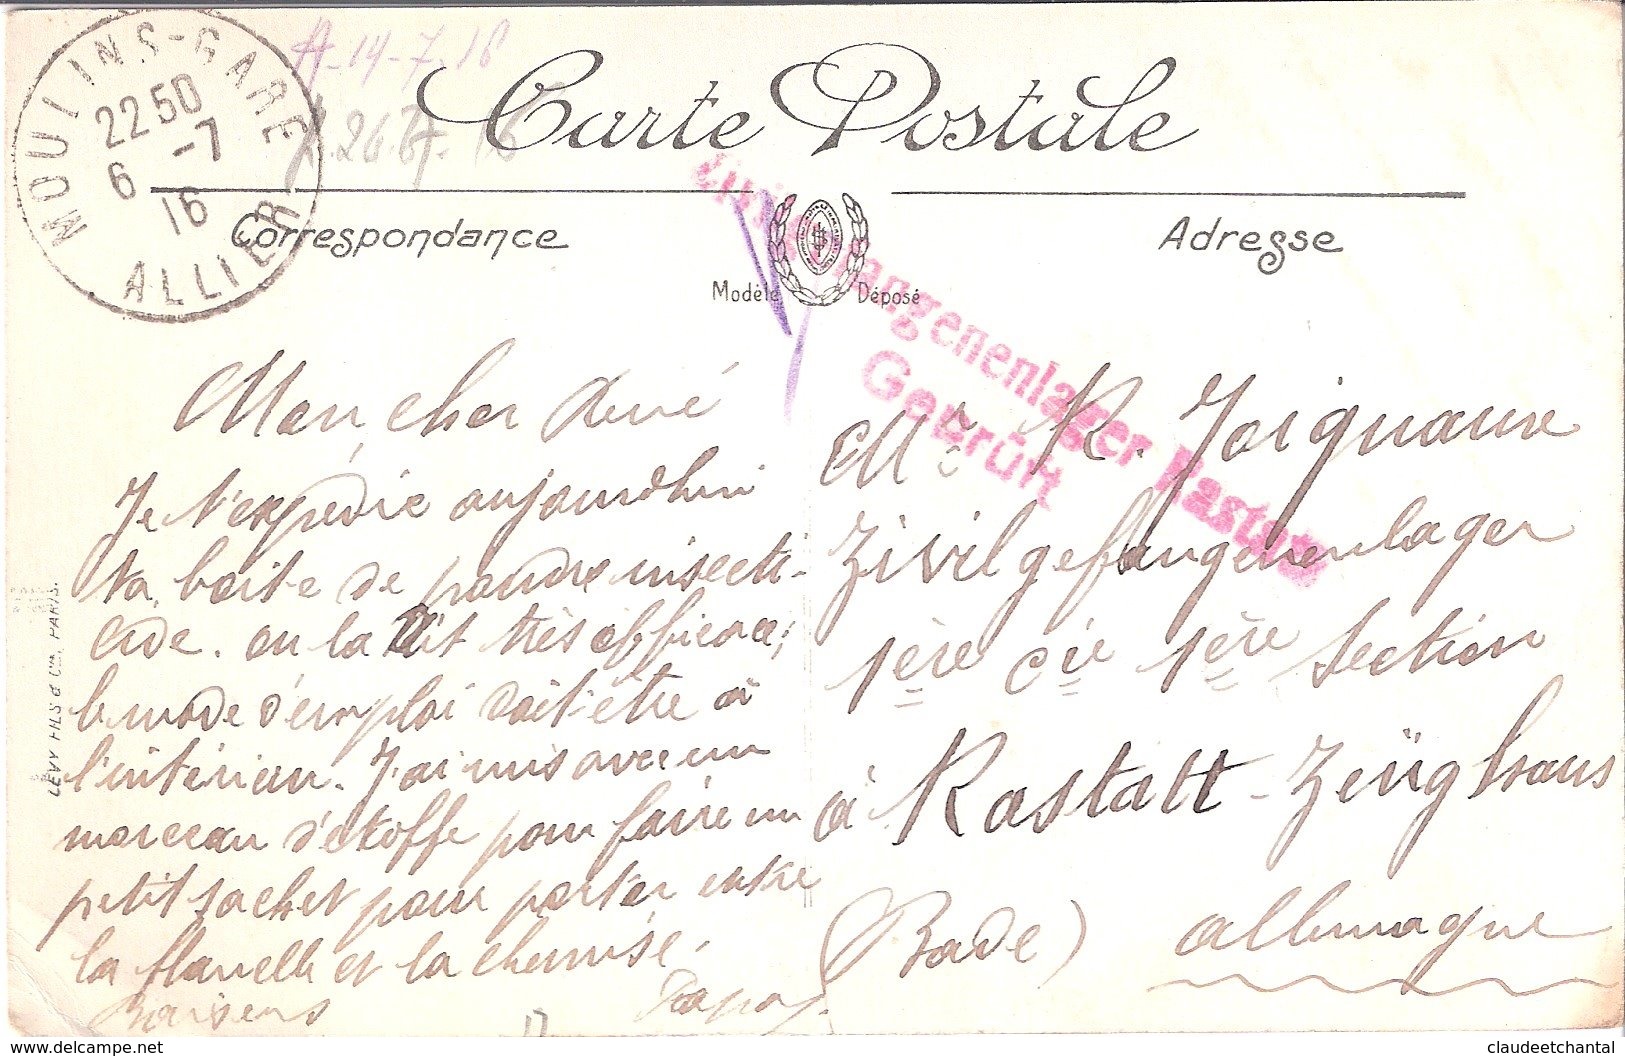 MOULINS-GARE
2250
6 -7
16
ALLIER
A-14-7.16
Carte Postale
Correspondance
Adresse
Modèle Déposé
Gefangenenlager Rastatt
Geprüft
Mon cher René
Je t'expédie aujourd'hui
ta boite de poudre insecti-
cide. on la dit très efficace;
le mode d'emploi doit-être à
l'intérieur. J'ai mis avec un
morceau d'étoffe pour faire un
petit sachet pour porter entre
la flanelle et la chemise.
Baisers Papa
Mr. R. Joignaux
Zivilgefangenenlager
1ère cie 1ère section
à Rastatt-Zeüghaus
(Bade) Allemagne
LEVY FILS & Cie, PARIS.
17
www.delcampe.net
claudeetchantal